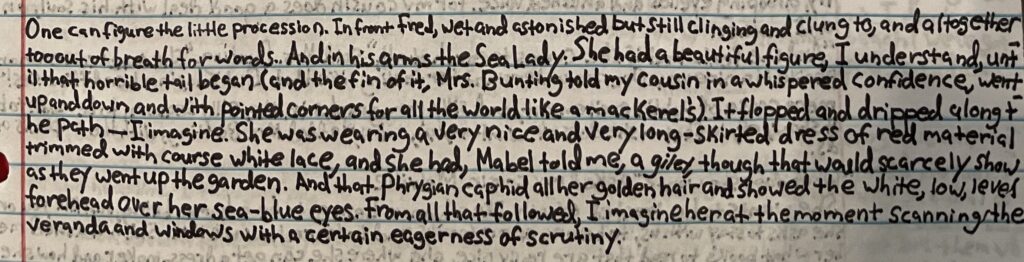 One can figure the little procession. In front Fred, wet and astonished but still clinging and clung to, and altogether
too out of breath for words. And in his arms the Sea Lady. She had a beautiful figure, I understand, unt
il that horrible tail began (and the fin of it, Mrs. Bunting told my cousin in a whispered confidence, went
up and down and with pointed corners for all the world like a mackerel's). It flopped and dripped along t
he path—I imagine. She was wearing a very nice and very long-skirted dress of red material
trimmed with course white lace, and she had, Mabel told me, a gilet, though that would scarcely show
as they went up the garden. And that Phrygian cap hid all her golden hair and showed the white, low, level
forehead over her sea-blue eyes. From all that followed, I imagine her at the moment scanning the
veranda and windows with a certain eagerness of scrutiny.